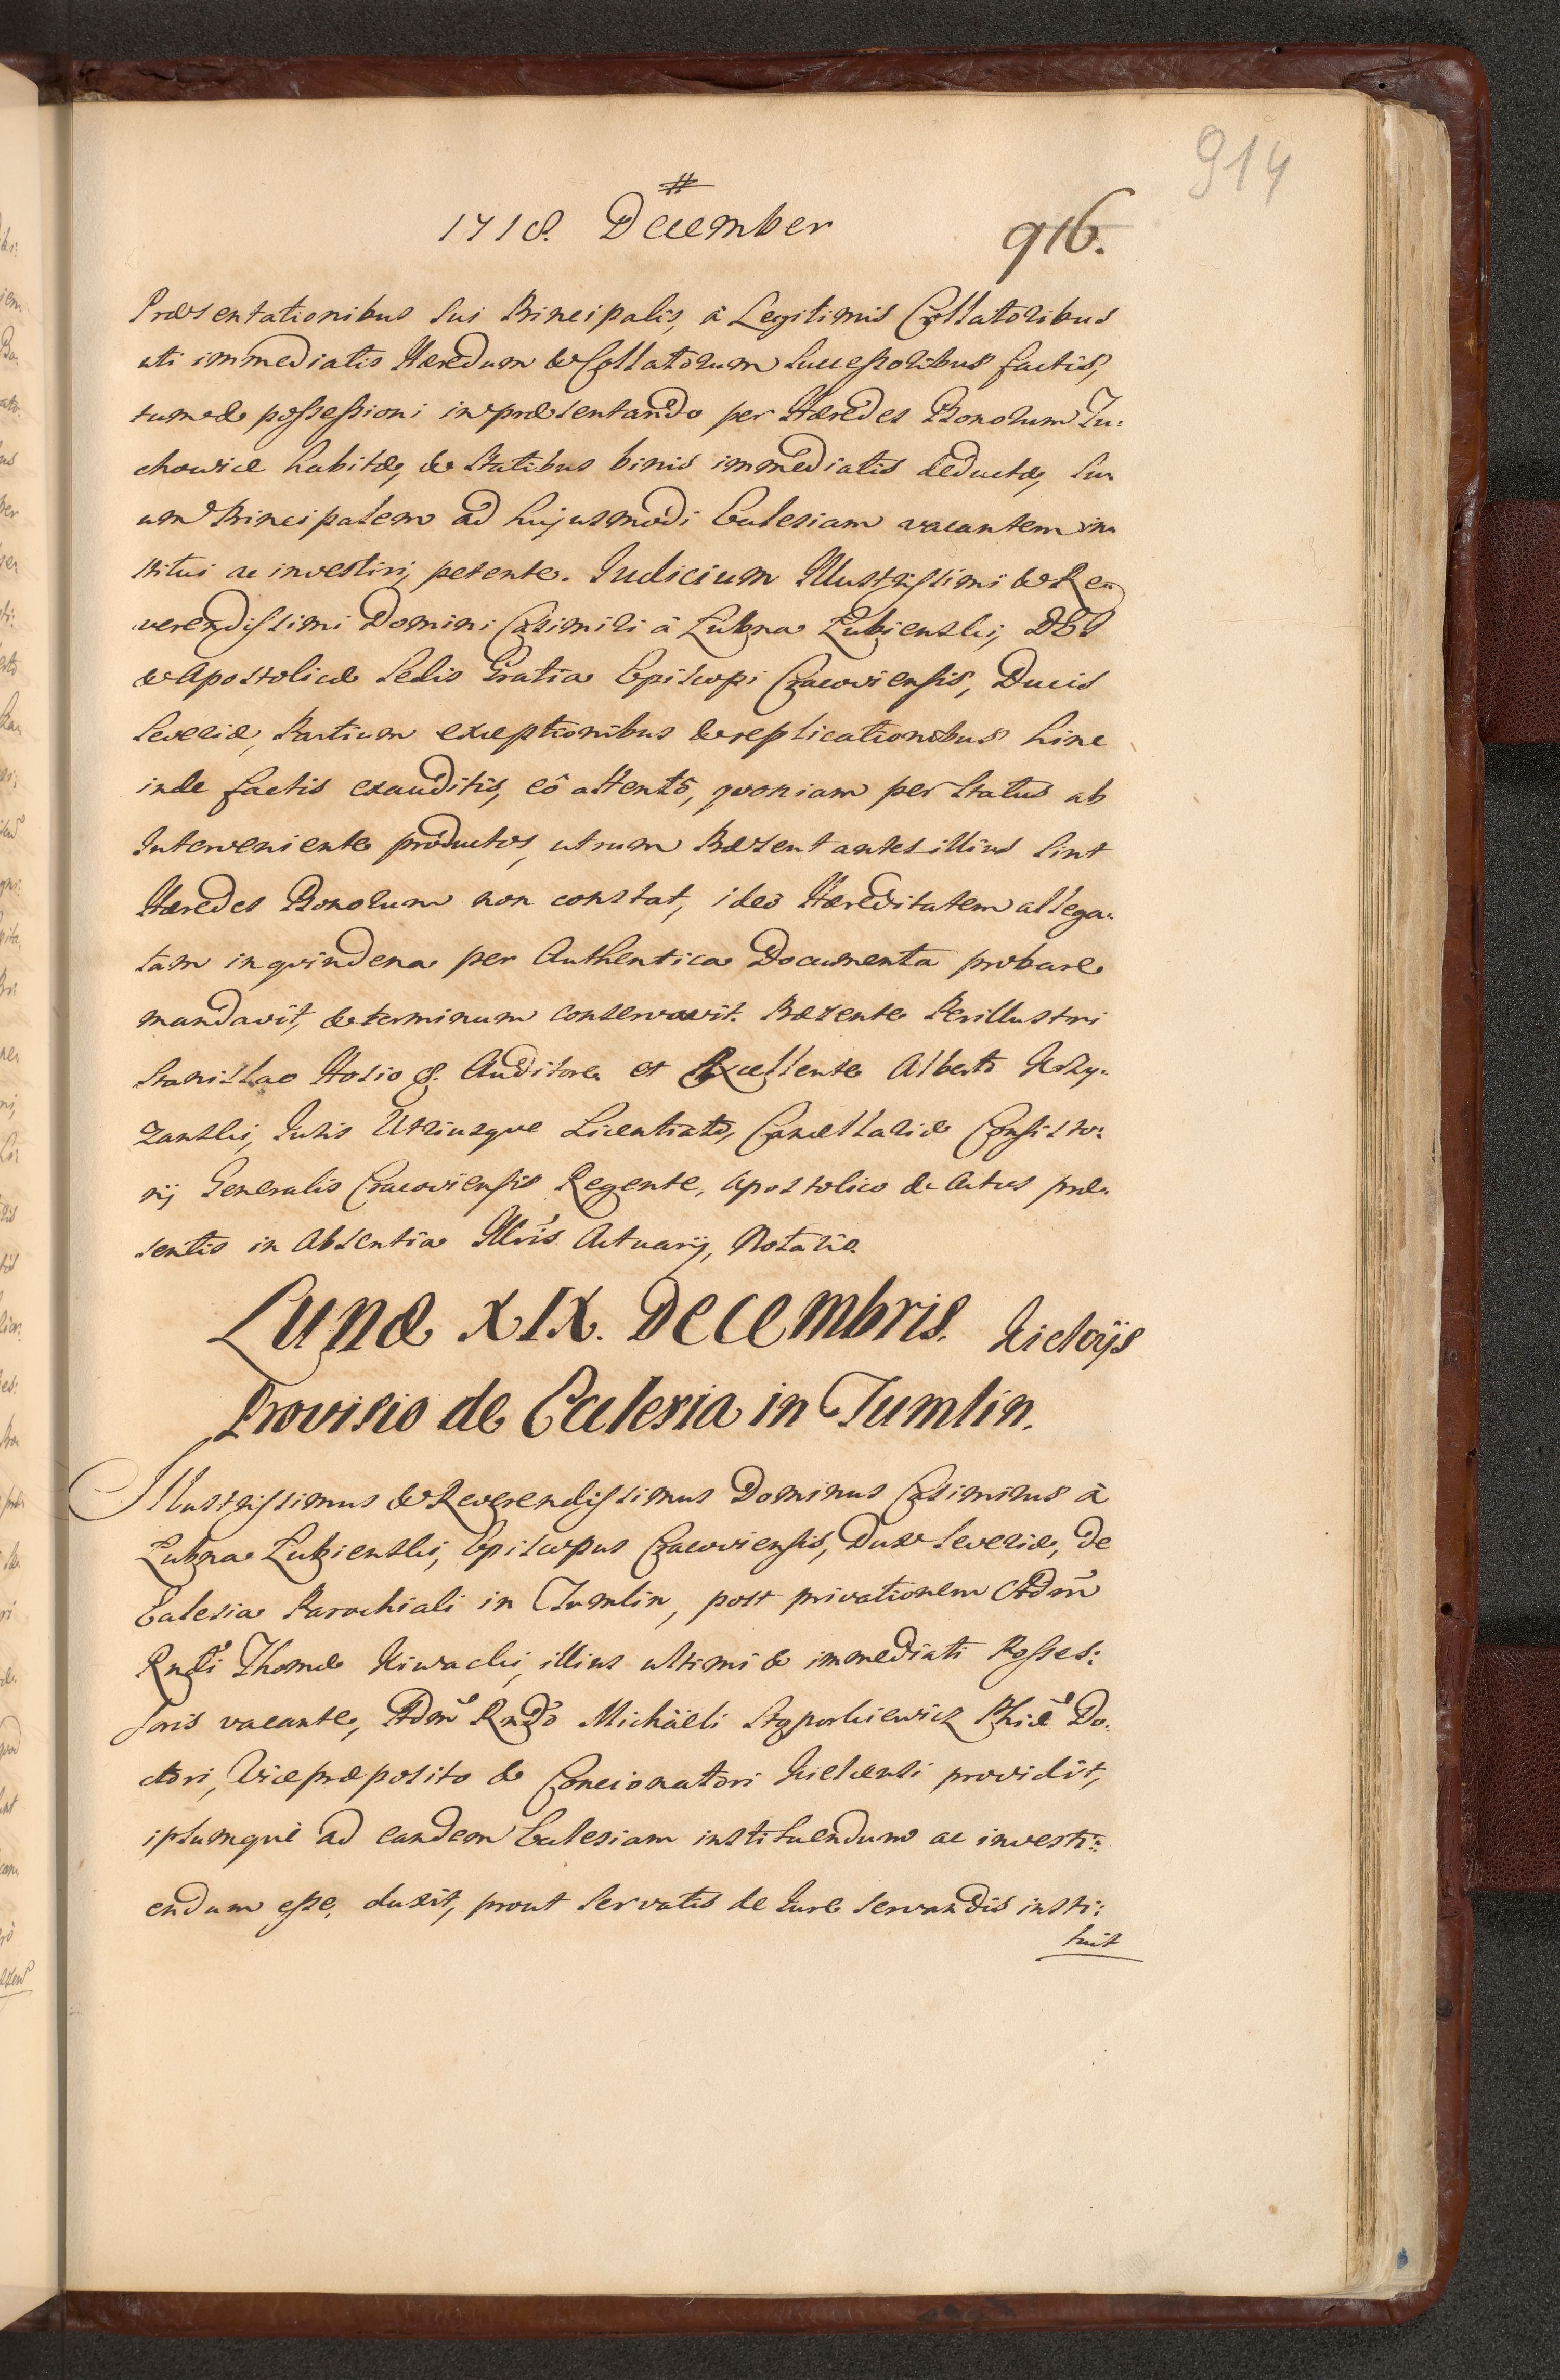 914
1718. December
916.
Præsentationibus sui Principalis, à Legitimis Collatoribus
uti immediatis Hæredum & Collatorum Successoribus factis,
tumæ possessioni in præsentando per Hæredes Bonorum Tu:
chowice habitæ, & Statibus binis immediatis deductæ, su
um Principalem ad hujusmodi Ecclesiam vacantem in
stitui ac investiri, petente. Judicium Illustrissimi & Re
verendissimi Domini Casimiri à Łubna Łubienski, DEI
& Apostolicæ Sedis Gratia Episcopi Cracoviensis, Ducis
Severiæ, Partium exceptionibus & replicationibus hinc
inde factis exauditis, eô attentô, qvoniam per Status ab
Interveniente productos, utrum Præsentantes illius sint
Hæredes Bonorum non constat, ideò Hæreditatem allega:
tam in qvindena per Authentica Documenta probare
mandavit, & terminum conservavit. Præsente Perillustri
Stanislao Hosio &. Auditore et Excellente Alberto Krzy:
zanski, Juris Utriusqve Licentiato, Cancellariæ Consisto:
rij Generalis Cracoviensis Regente, Apostolico & Actus præ
sentis in Absentia Illris Actuarij, Notario.
Lunæ XIX. Decembris. Kielcijs
Provisio de Ecclesia in Tumlin.
Illustrissimus & Reverendissimus Dominus Casimirus à
Łubna Łubienski, Episcopus Cracoviensis, Dux Severiæ, de
Ecclesia Parochiali in Tumlin, post privationem Adm
Rndi Thomæ Kiwacki, illius ultimi & immediati Posses:
soris vacante, Adm Rndo Michaëli Stąporkiewicz Phiæ Do:
ctori, Vicepræposito & Concionatori Kielcensi providit,
ipsumqvè ad eandem Ecclesiam instituendum ac investi:
endum esse duxit, prout servatis de Jure servandis insti:
tuit